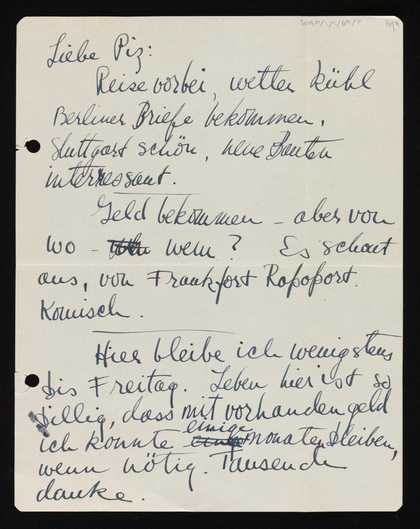 Liebe Piz:
Reise vorbei, wetter kühl
Berliner Briefe bekommen.
Stuttgart schön, neue Bauten
interessant.
Geld bekommen – aber von
wo – wem? Es schaut
aus, von Frankfort Rapoport.
Komisch.
Hier bleibe ich wenigstens
bis Freitag. Leben hier ist so
billig, dass mit vorhanden geld
ich konnte einige monaten bleiben,
wenn nötig. Tausend
danke.